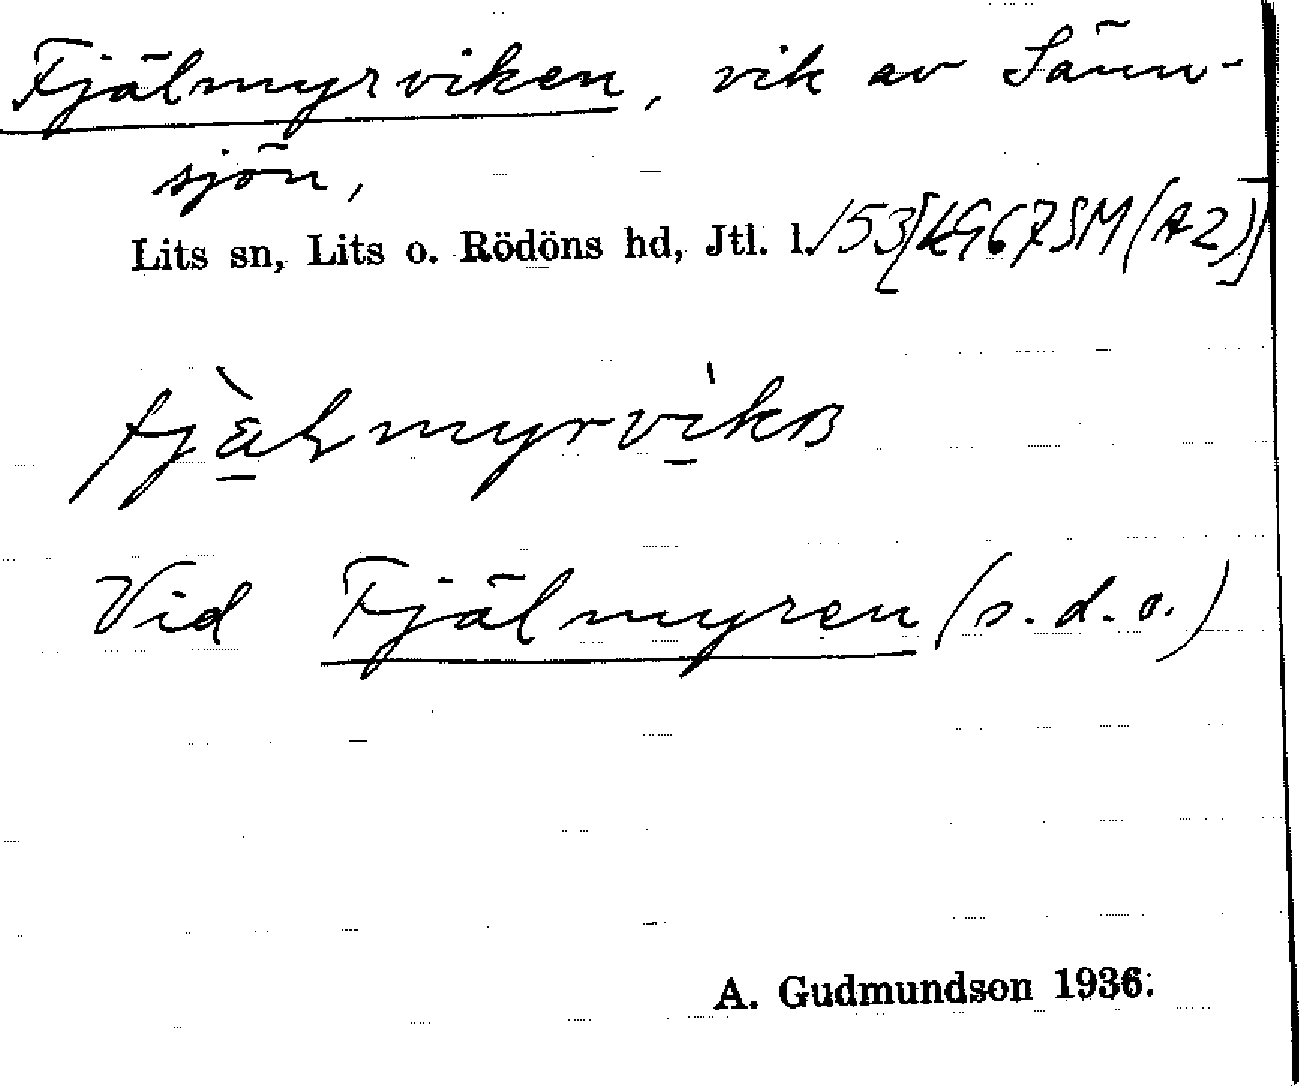 Fjälmyrviken, vik av Sänn-
sjön,
Lits sn, Lits o. Rödöns hd, Jtl. l. 153[KG67SM(A2)]
Vid Fjälmyren (s.d.o.)
A. Gudmundson 1936.